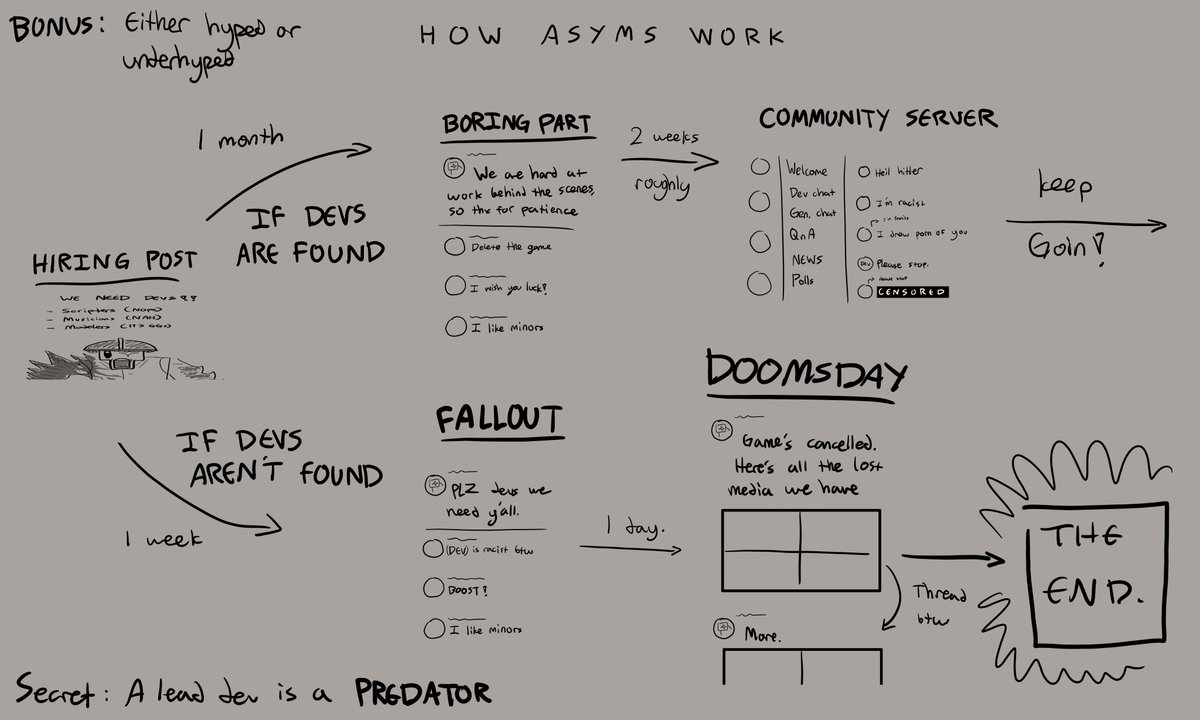 BONUS: Either hyped or
underhyped
HOW ASYMS WORK
HIRING POST
WE NEED DEVS??
- Scripters (NOPE)
- Musicians (NAH)
- Modelers (IT'S GGN)
1 month
IF DEVS
ARE FOUND
BORING PART
We are hard at
work behind the scenes,
so thx for patience
Delete the game
I wish you luck?
I like minors
2 weeks
roughly
COMMUNITY SERVER
Welcome
Dev chat
Gen. chat
QnA
NEWS
Polls
Heil hitler
I'm racist
I'm racist
I drew porn of you
DEV
Please stop.
please stop
CENSORED
keep
Goin?
IF DEVS
AREN'T FOUND
1 week
FALLOUT
PLZ devs we
need y'all.
(DEV) is racist btw
BOOST?
I like minors
1 day.
DOOMSDAY
Game's cancelled.
Here's all the lost
media we have
Thread
btw
More.
THE
END.
Secret: A lead dev is a PREDATOR